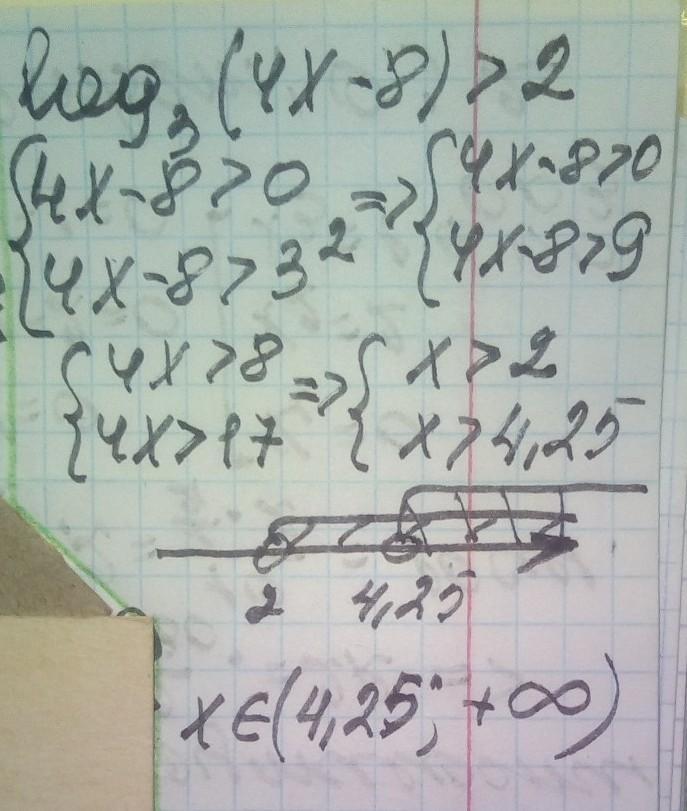 log₃(4x-8)>2
{4x-8>0 => {4x-8>0
{4x-8>3² {4x-8>9
{4x>8 => {x>2
{4x>17 {x>4,25
2 4,25
x∈(4,25; +∞)